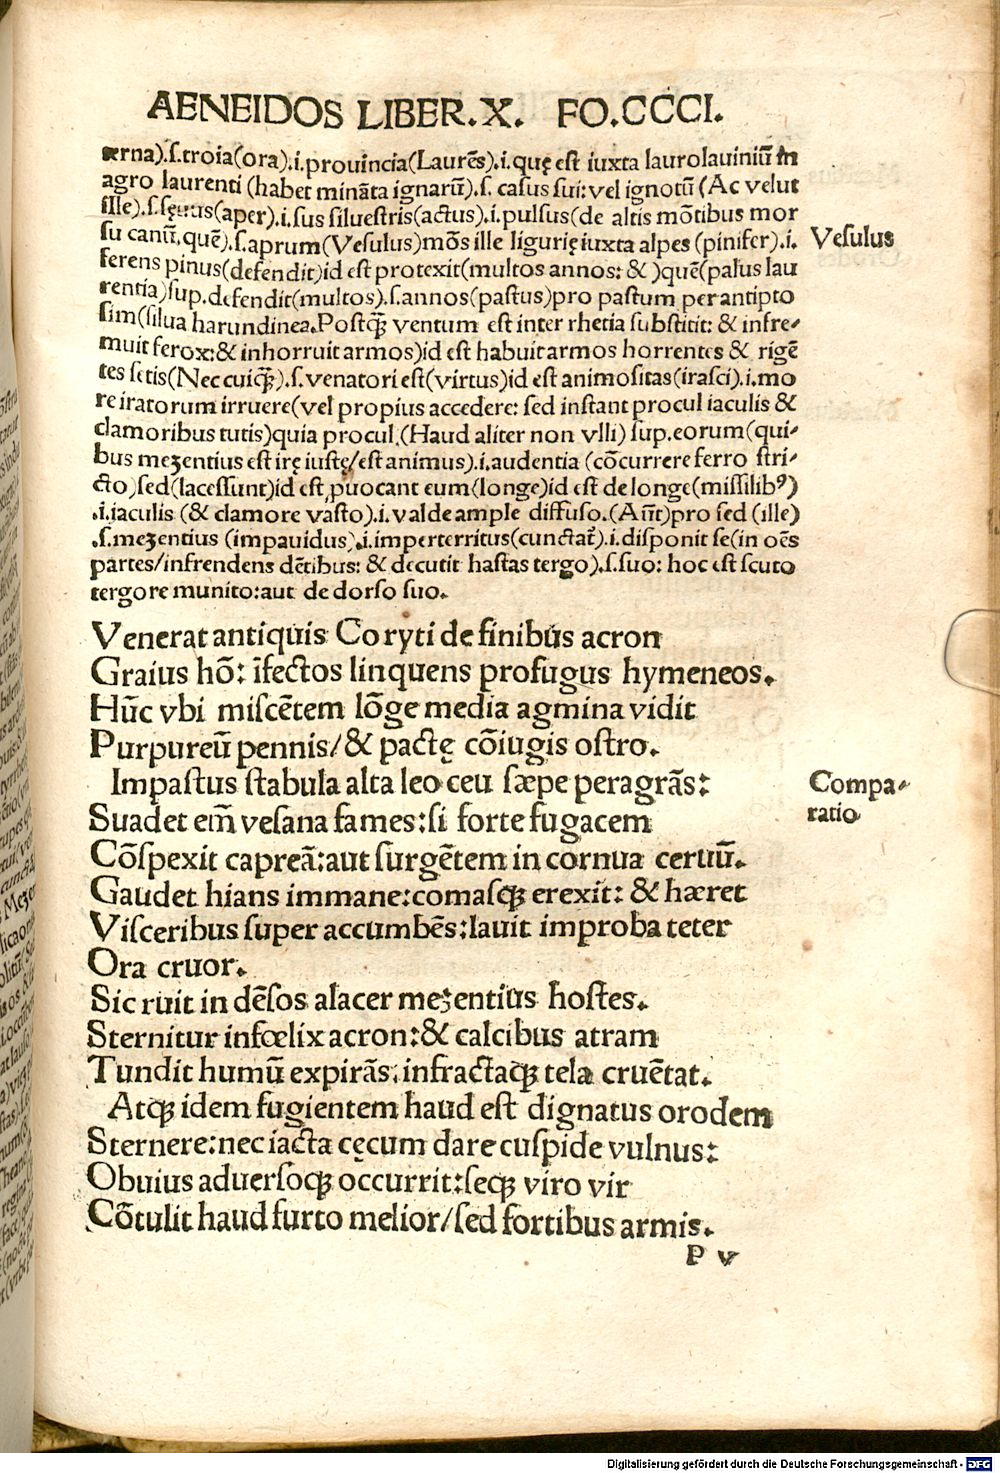 AENEIDOS LIBER.X. FO.CCCI.
terna).ſ.troia(ora).i.prouincia(Laurēs).i.quę eſt iuxta laurolauiniū in
agro laurenti (habet mināta ignarū).ſ. caſus ſui: vel ignotū (Ac velut
ille).ſ.ſęuus(aper).i.ſus ſilueſtris(actus).i.pulſus(de altis mōtibus mor
ſu canū, quē).ſ.aprum(Veſulus)mōs ille ligurię iuxta alpes (pinifer).i.
Veſulus
ferens pinus(defendit)id eſt protexit(multos annos: & )quē(palus lau
rentia)ſup.defendit(multos).ſ.annos(paſtus)pro paſtum per antipto
ſim(ſilua harundinea.Poſtqꝫ ventum eſt inter rhetia ſubſtitit: & infre-
muit ferox:& inhorruit armos)id eſt habuit armos horrentes & rigē
tes ſetis(Nec cuiqꝫ).ſ.venatori eſt(virtus)id eſt animoſitas(iraſci).i.mo
re iratorum irruere(vel propius accedere: ſed inſtant procul iaculis &
clamoribus tutis)quia procul.(Haud aliter non vlli) ſup.eorum(qui-
bus meꝫentius eſt irę iuſtę/eſt animus).i.audentia (cōcurrere ferro ſtri-
cto)ſed(laceſſunt)id eſt ꝓuocant eum(longe)id eſt de longe(miſſilibꝰ)
.i.iaculis (& clamore vaſto).i.valde ample diffuſo.(Aūt)pro ſed (ille)
.ſ.meꝫentius (impauidus).i.imperterritus(cunctat̄).i.diſponit ſe(in oēs
partes/infrendens dētibus: & decutit haſtas tergo).ſ.ſuo: hoc eſt ſcuto
tergore munito:aut de dorſo ſuo.
Venerat antiquis Coryti de finibus acron
Graius hō: īfectos linquens profugus hymeneos.
Hūc vbi miſcētem lōge media agmina vidit
Purpureū pennis/& pactę cōiugis oſtro.
Impaſtus ſtabula alta leo ceu ſæpe peragrās:
Compa-
ratio
Suadet em̄ veſana fames:ſi forte fugacem
Cōſpexit capreā:aut ſurgētem in cornua ceruū.
Gaudet hians immane:comaſqꝫ erexit: & hæret
Viſceribus ſuper accumbēs:lauit improba teter
Ora cruor.
Sic ruit in dēſos alacer meꝫentius hoſtes.
Sternitur infœlix acron:& calcibus atram
Tundit humū expirās, infractaqꝫ tela cruētat.
Atqꝫ idem fugientem haud eſt dignatus orodem
Sternere:nec iacta cęcum dare cuſpide vulnus:
Obuius aduerſoqꝫ occurrit:ſeqꝫ viro vir
Cōtulit haud furto melior/ſed fortibus armis.
P v
Digitalisierung gefördert durch die Deutsche Forschungsgemeinschaft - DFG